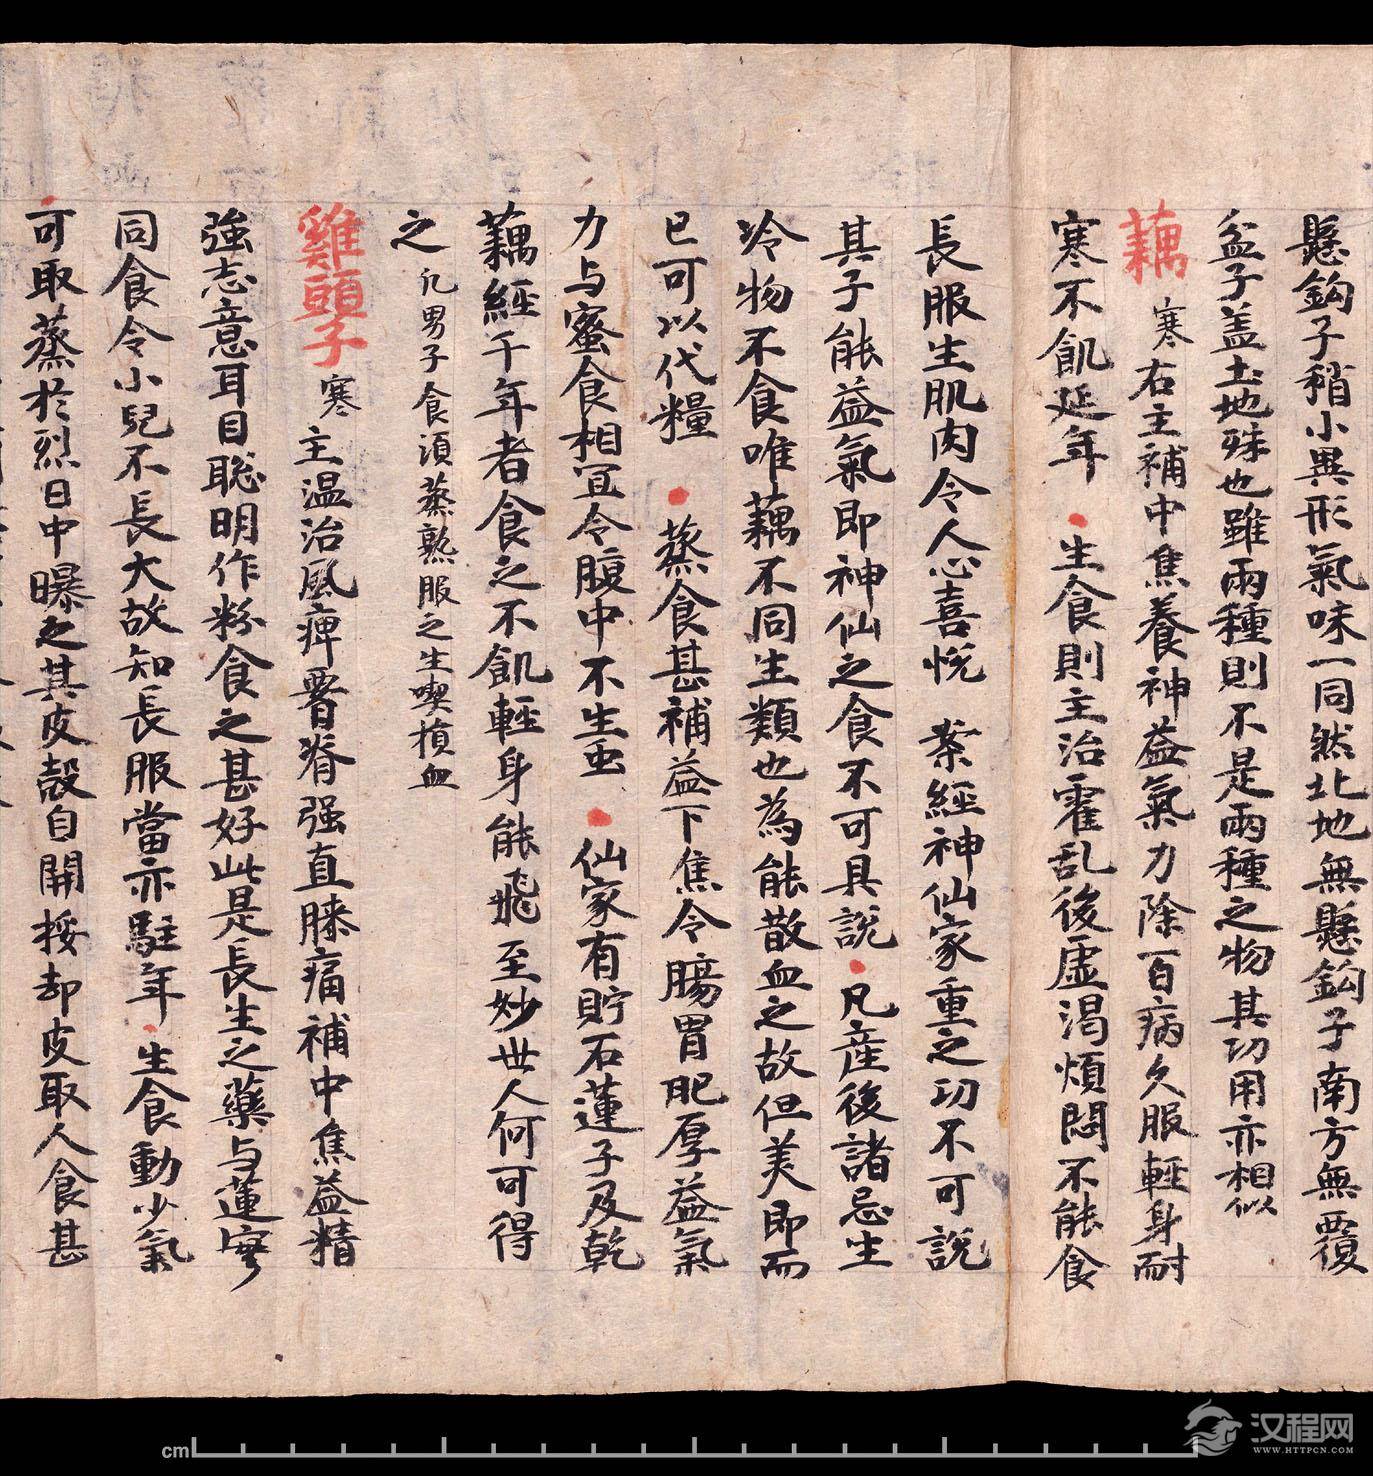 懸鈎子稍小異形氣味一同然北地無懸鈎子南方無覆
盆子盖土地殊也雖兩種則不是兩種之物其功用亦相似
藕 寒 右主補中焦養神益氣力除百病久服輕身耐
寒不飢延年 生食則主治霍乱後虛渴煩悶不能食
長服生肌肉令人心喜悅 案經神仙家重之功不可說
其子能益氣即神仙之食不可具說 凡産後諸忌生
冷物不食唯藕不同生類也為能散血之故但美即而
已可以代糧 蒸食甚補益下焦令腸胃肥厚益氣
力与蜜食相冝令腹中不生虫 仙家有貯石蓮子及乾
藕經千年者食之不飢輕身能飛至妙世人何可得
之 凡男子食須蒸熟服之生喫損血
雞頭子 寒 主温治風痺 脊強直膝痛補中焦益精
強志意耳目聡明作粉食之甚好此是長生之藥与蓮實
同食令小兒不長大故知長服當亦駐年 生食動少氣
可取蒸於烈日中曝之其皮殼自開挼却皮取人食甚
cm
汉程网
WWW.HTTPCN.COM